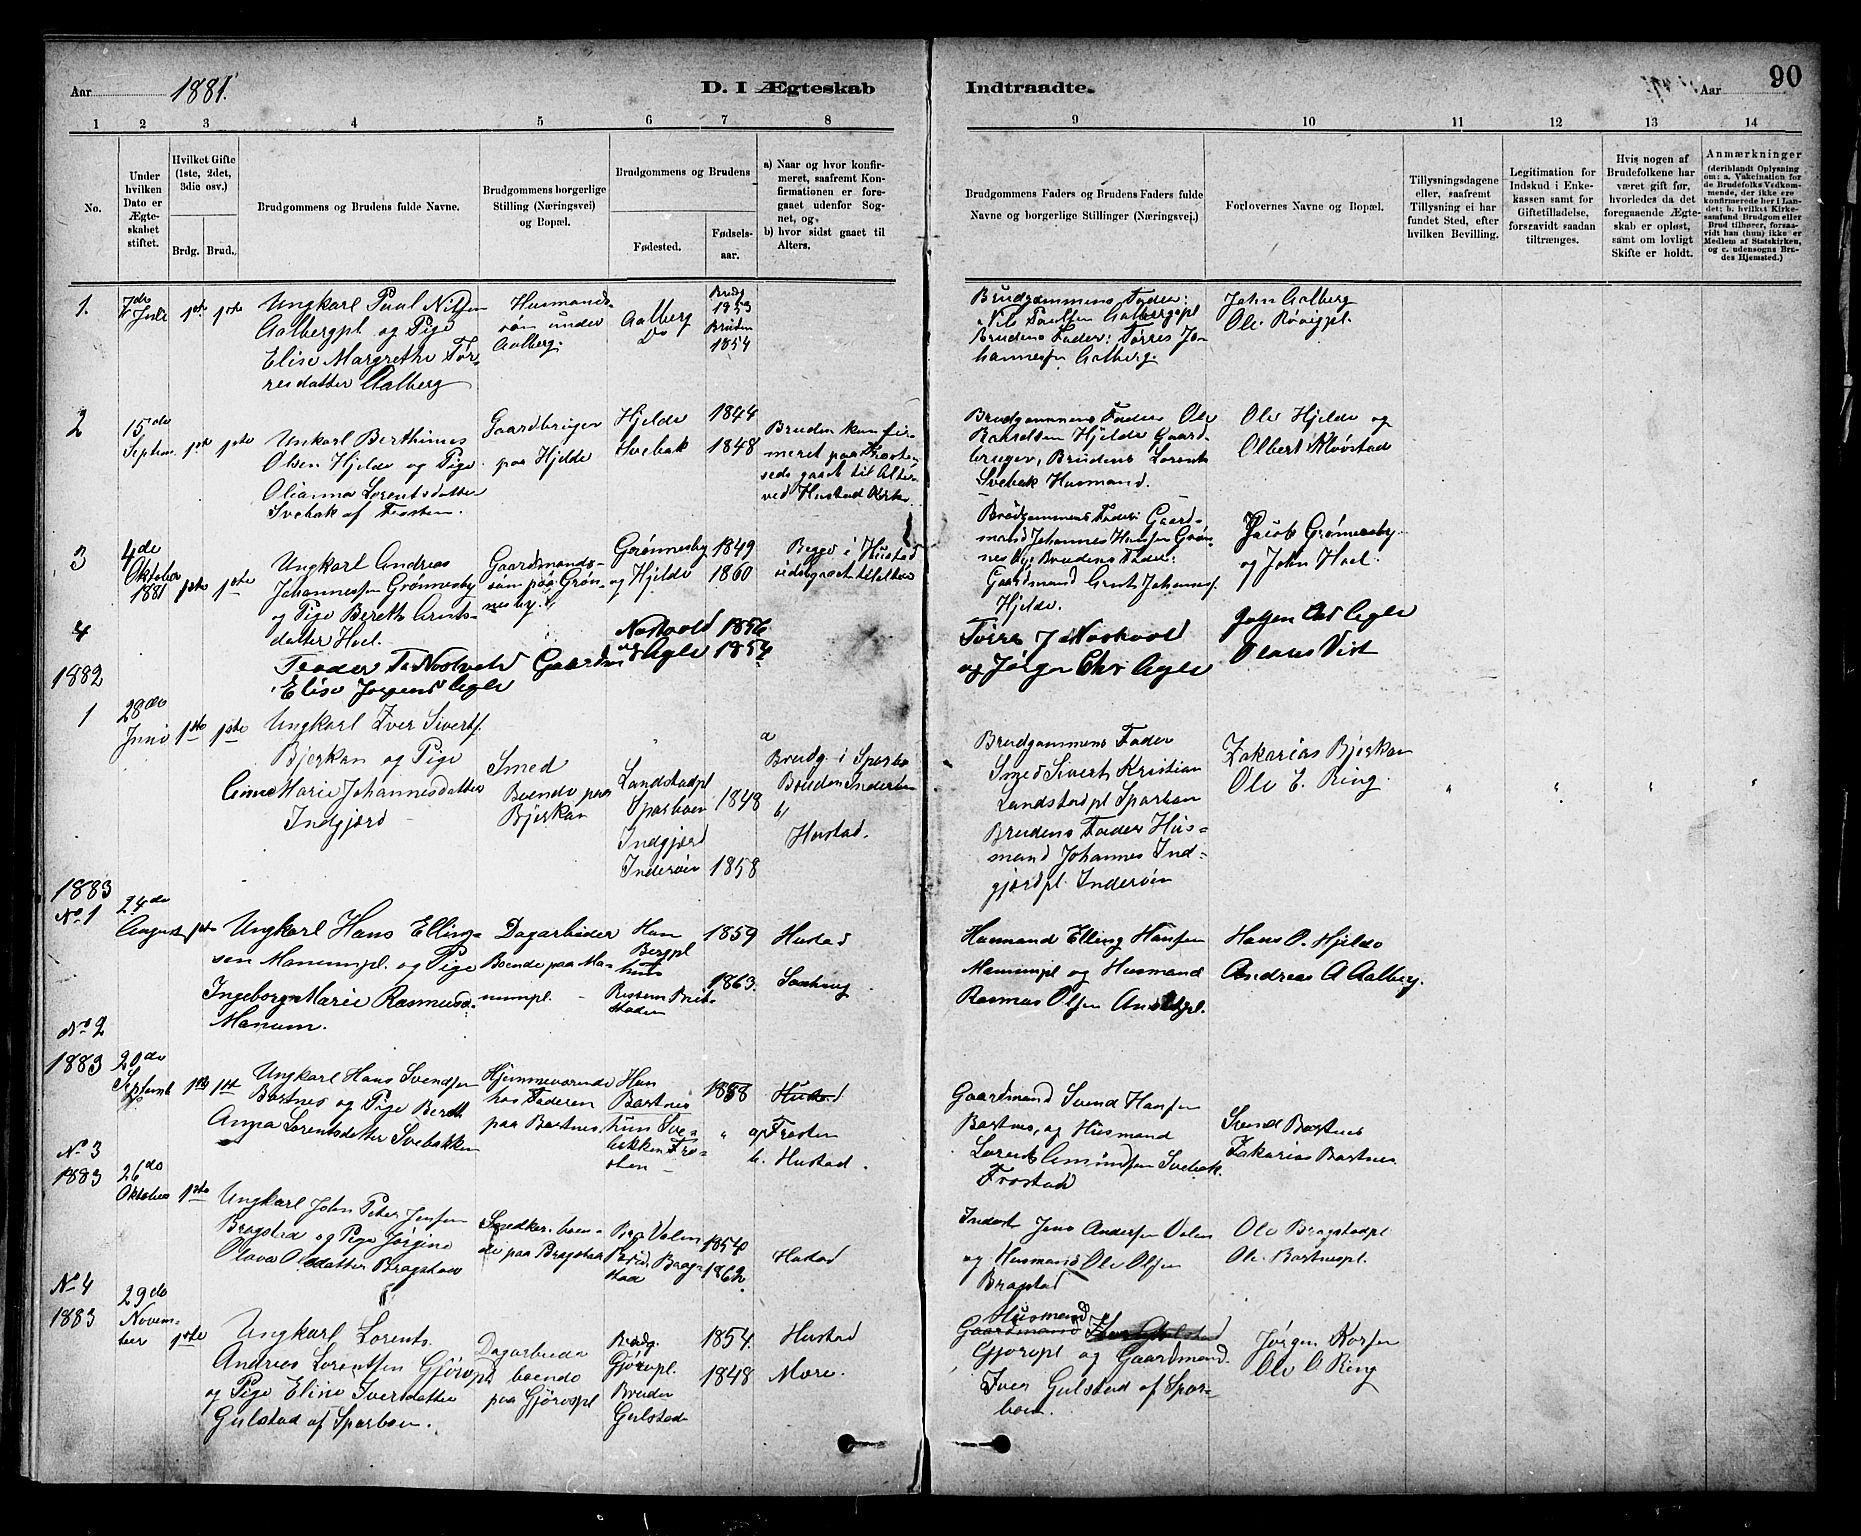 Aar 1881. D. I Ægteskab Indtraadte. Aar 90
1 2 3 4 5 6 7 8 9 10 11 12 13 14
No.
Under hvilken Dato er Ægteskabet stiftet.
Hvilket Gifte (1ste, 2det, 3die osv.)
Brdg. Brud.
Brudgommens og Brudens fulde Navne.
Brudgommens borgerlige Stilling (Næringsvei) og Bopæl.
Brudgommens og Brudens
Fødested.
Fødselsaar.
a) Naar og hvor konfirmeret, saafremt Konfirmationen er foregaaet udenfor Sognet, og
b) hvor sidst gaaet til Alters.
Brudgommens Faders og Brudens Faders fulde Navne og borgerlige Stillinger (Næringsvej.)
Forlovernes Navne og Bopæl.
Tillysningsdagene eller, saafremt Tillysning ei har fundet Sted, efter hvilken Bevilling.
Legitimation for Indskud i Enkekassen samt for Giftetilladelse, forsravidt saadan tiltrænges.
Hvis nogen af Brudefolkene har været gift før, hvorledes da det foregaaende Ægteskab er opløst, samt om lovligt Skifte er holdt.
Anmærkninger (deriblandt Oplysning om: a. Vakcination for de Brudefolks Vedkommende, der ikke ere konfirmerede her i Landet; b. hvilket Kirkesamfund Brudgom eller Brud tilhører, forsaavidt han (hun) ikke er Medlem af Statskirken, og c. udensogns Brudes Hjemsted.)
1. 7de Juli 1ste 1ste
Ungkarl Paul Nilsen
Aalbergpl og Pige
Elise Margrethe Tør-
resdatter Aalberg
Husmands-
søn under
Aalberg.
Aalberg
Do
Brudg
1853
Bruden
1854
Brudgommens Fader:
Nils Paulsen Aalbergspl
Brudens Fader: Tørres Jo-
hannesen Aalberg.
John Aalberg
2 15de Septem. 1ste 1ste
Unkarl Berthinus
Olsen Hjelde og Pige
Olianna Lorentsdatter
Svebak af Frosten.
Gaardbruger
paa Hjelde
Hjelde 1844
Svebak 1848
Bruden konfir-
meret paa Frosten
sidst gaaet til Alters
ved Hustad Kirke
Brudgommens Fader Ole
Hjelde Gaard-
bruger, Brudens Lorents
Svebak Husmand.
Ole Hjelde og
Olbert Kløvstad
3 4de Oktober 1881 1ste 1ste
Ungkarl Andreas
Johannessen Grønnesby
og Pige Bereth Arnts-
datter Hoel.
Gaardmands-
søn paa Grøn-
nesby.
Grønnesby 1849
og Hjelde 1860
Begge i Hustad
sidst gaaet til Alters
Brudgommens Fader Gaard-
mand Johannes Hansen Grøn-
nesby. Brudens Fader:
Gaardmand Arnt Johannes.
Hjelde.
Jacob Grønnesby
og John Hoel.
4
T. Nostvold
Elise Jørgens Aagle
1856
1854
og Jørgen Chr Aagle
Olaus Vist
1882
1 28de Juni 1ste 1ste
Ungkarl Iver Siverts.
Bjerkan og Pige
Anne Marie Johannesdatter
Indgjerd
Smed
Boende paa
Bjerkan
Landstadpl
Sparboen 1848
Indgjerd
Inderøen 1858
a
Brudg. i Sparbo
Bruden Inderøen
b)
Hustad.
Brudgommens Fader
Smed Sivert Kristian
Landstadpl Sparboen
Brudens Fader Hus-
mand Johannes Ind-
gjerdpl. Inderøen
Zakarias Bjerkan
Ole E. Ring.
" " " "
1883
No 1 24de August 1ste
Ungkarl Hans Elling-
sen Manumpl. og Pige
Ingeborg Marie Rasmusd.
Manum.
Dagarbeider
Boende paa Ma-
numpl.
Han
Bergpl
hun
1859
1863.
Hustad
Husmand Elling Hansen
Manumpl og Husmand
Rasmus Olsen
Hans O. Hjelde
Andreas A Aalberg.
No 2
1883 20de Septemb 1ste 1ste
Ungkarl Hans Svendsen
Bartnes og Pige Bereth
Anna Lorentsdatter Svebakken
Hjemmeværende
hos Faderen
paa Bartnes.
Han
Bartnes
hun Sve-
bekken Fro-
sten
1858
"
Hustad
a Frosten
b. Hustad.
Gaardmand Svend Hansen
Bartnes, og Husmand
Lorents Amundsen Svebak.
Frostad
Svend Bartnes
Zakarias Bartnes
No 3
1883 26de Oktober 1ste
Ungkarl John Peter Jensen
Bragstad og Pige Jørgine
Olava Olsdatter Bragstad
boen-
de paa Bragstad
Valen 1854
Brud. Brag-
stad 1862
Hustad
Inderst Jens Andersen Valen
og Husmand Ole Olsen
Bragstad
Ole Bragstadpl
Ole Bartnespl.
No 4
1883 29de Novem-
ber 1ste
Ungkarl Lorents
Andreas Lorentsen Gjørvpl
og Pige Eline Iversdatter
Gulstad af Sparboen.
Dagarbeider
boende
paa Gjørvpl
Brudg.
Gjørvpl. 1854.
Bruden
Gulstad 1848
Hustad
Mære.
Husmand
Gaardmand
Gjørvpl og Gaardmand
Iver Gulstad af Spar-
boen.
Jørgen Korsen
Ole O Ring